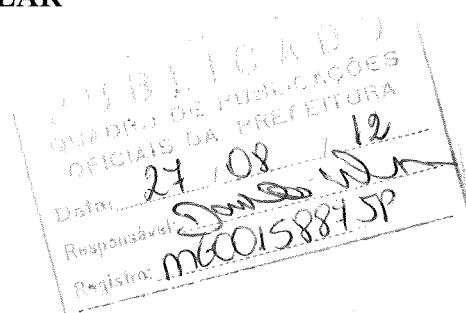 LAR
PUBLICADO
QUADRO DE PUBLICAÇÕES
OFICIAIS DA PREFEITURA
Data: 27 / 08 / 12
Responsável:
Registro: MG001588475P